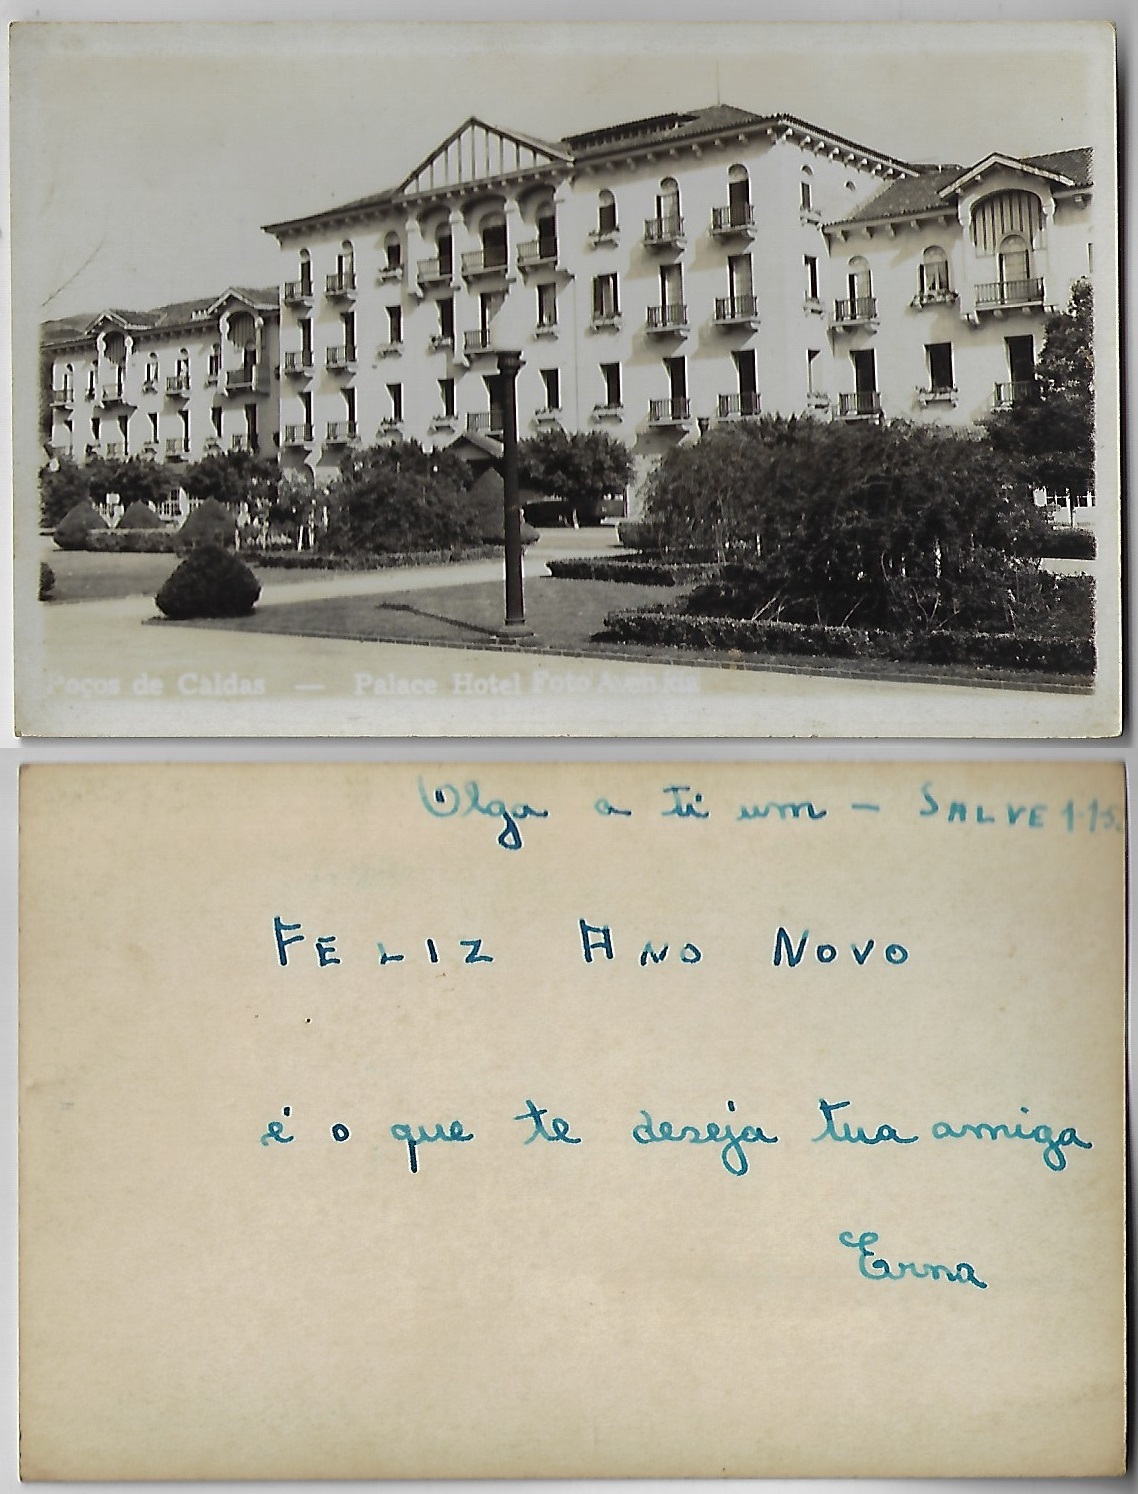 Poços de Caldas — Palace Hotel Foto
Olga a ti um — SALVE 1-1-5
FELIZ ANO NOVO
é o que te deseja tua amiga
Erna